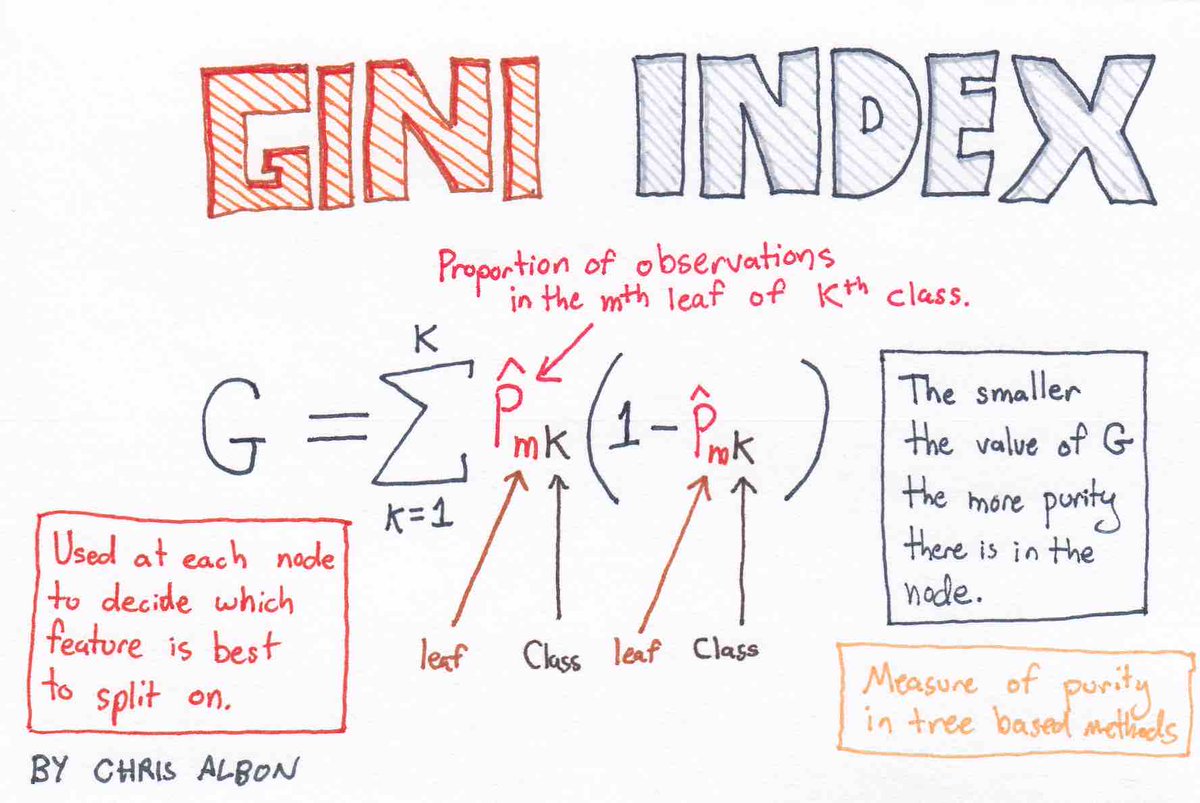 GINI INDEX
Proportion of observations
in the mth leaf of Kth class.
G = K ∑ k=1 P̂mk (1 - P̂mk)
leaf Class leaf Class
The smaller
the value of G
the more purity
there is in the
node.
Used at each node
to decide which
feature is best
to split on.
Measure of purity
in tree based methods
BY CHRIS ALBON